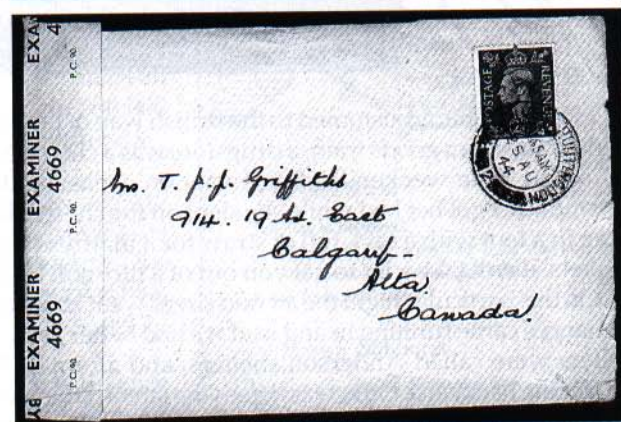 EXAMINER
4669
P.C. 90.
EXAMINER
4669
P.C. 90.
EXAMINER
4
P.C. 90.
BY
POSTAGE
REVENUE
HUNTINGDON
45AM
5 AU
44
2
Mrs. T. J. J. Griffiths
914. 19 Av. East
Calgary-
Alta
Canada.